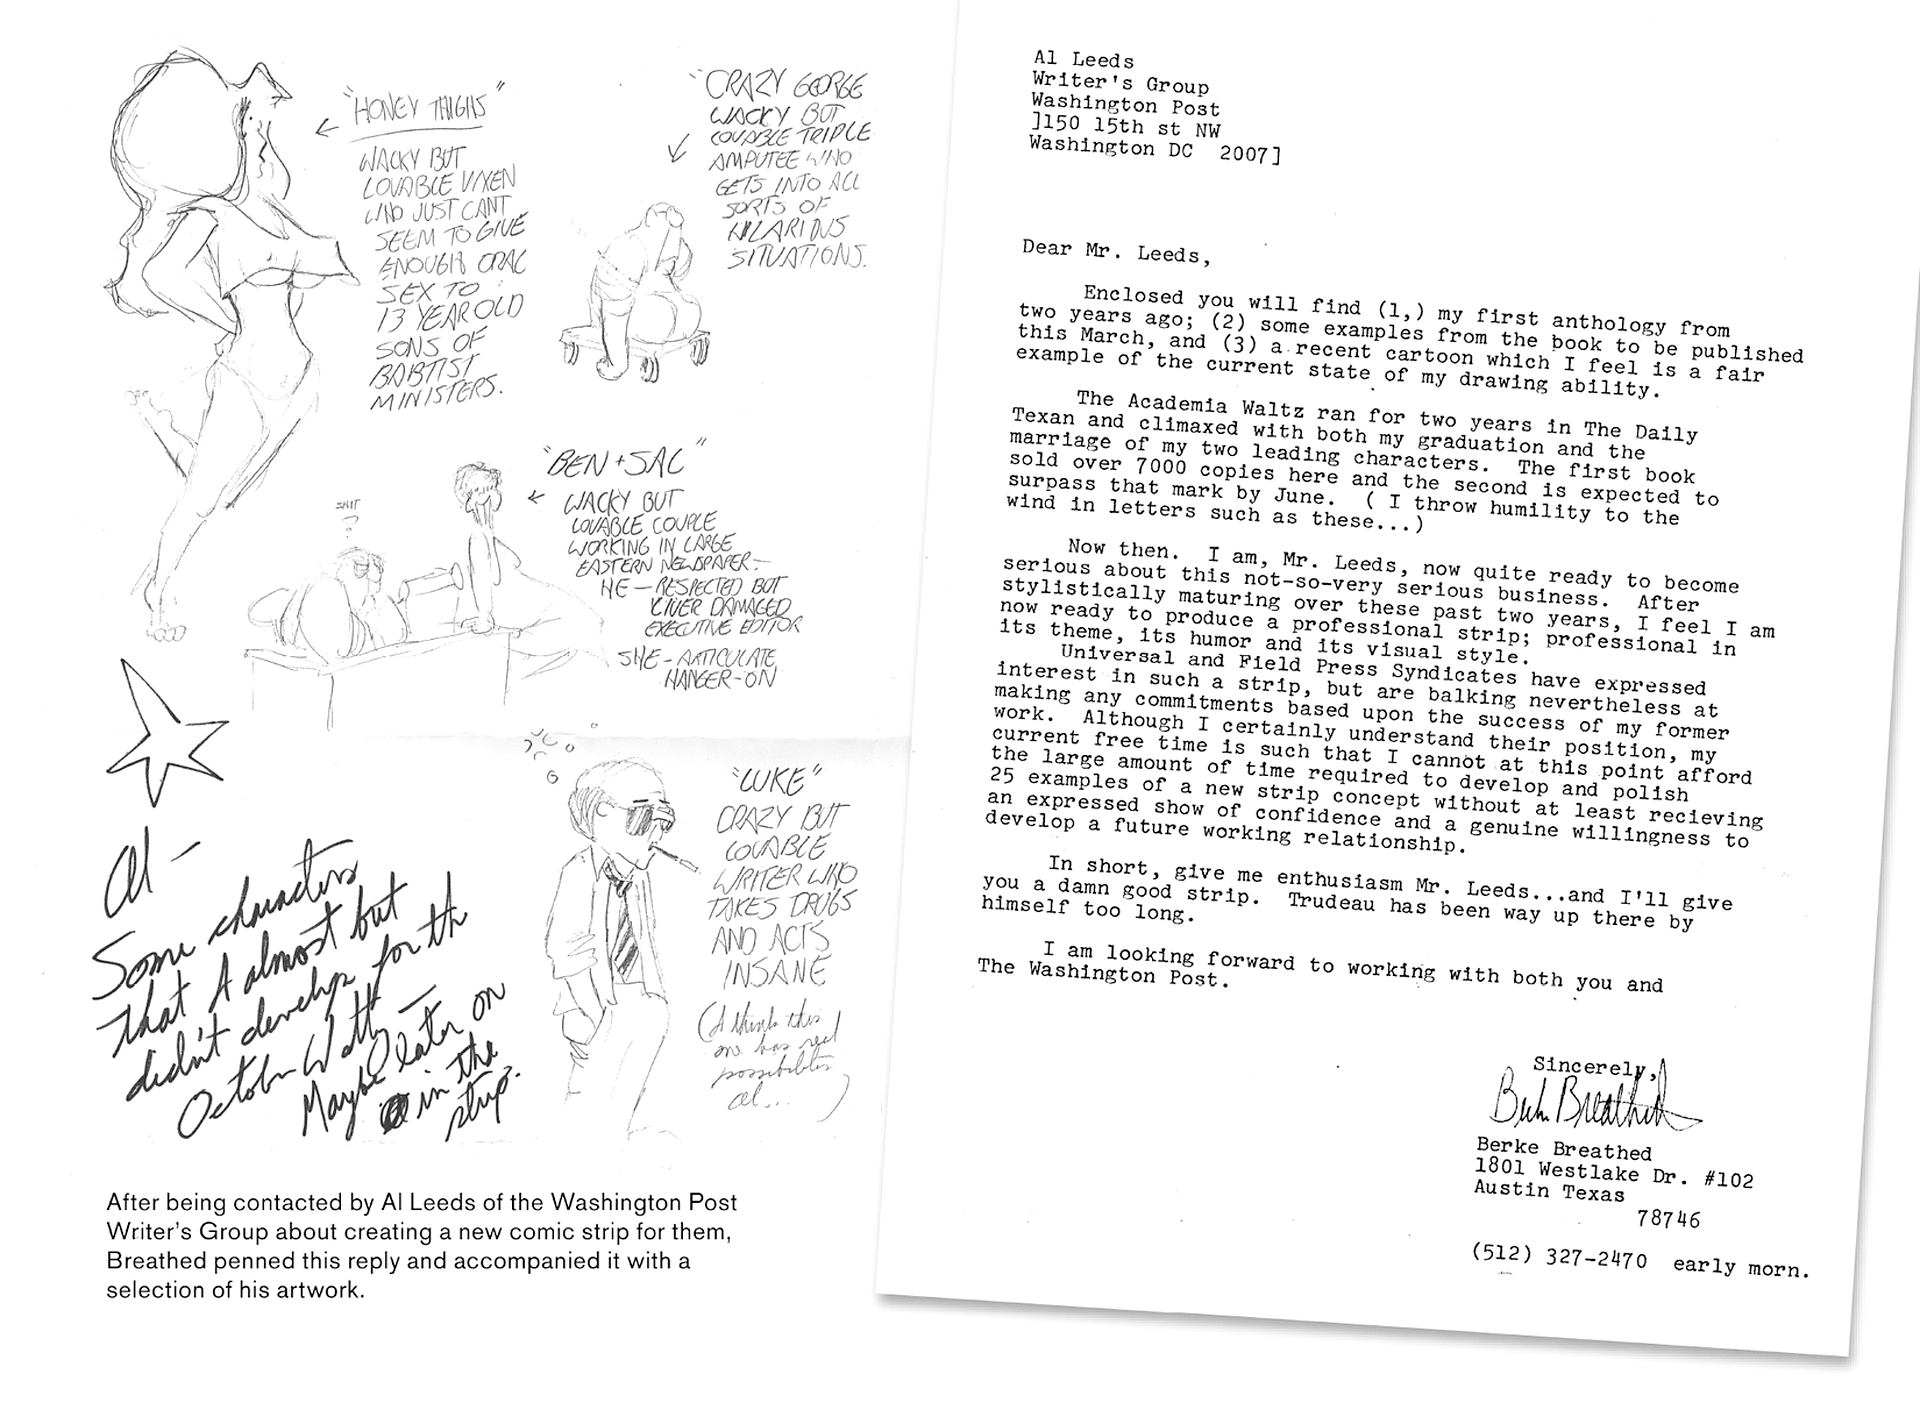 "HONEY THIGHS"
WACKY BUT
LOVABLE VIXEN
WHO JUST CANT
SEEM TO GIVE
ENOUGH ORAL
SEX TO
13 YEAR OLD
SONS OF
BABTIST
MINISTERS.
"CRAZY GEORGE
WACKY BUT
LOVABLE TRIPLE
AMPUTEE WHO
GETS INTO ALL
SORTS OF
HILARIOUS
SITUATIONS.
"BEN + SAL"
WACKY BUT
LOVABLE COUPLE
WORKING IN LARGE
EASTERN NEWSPAPER—
HE — RESPECTED BUT
LIVER DAMAGED
EXECUTIVE EDITOR
SHE - ARTICULATE
HANGER-ON
?
"LUKE"
CRAZY BUT
LOVABLE
WRITER WHO
TAKES DRUGS
AND ACTS
INSANE
(I think this
one has real
possibilities
Al... )
Al —
Some characters
that I almost but
didn't develop for the
October
Maybe later on
in the
strip.
After being contacted by Al Leeds of the Washington Post
Writer's Group about creating a new comic strip for them,
Breathed penned this reply and accompanied it with a
selection of his artwork.
Al Leeds
Writer's Group
Washington Post
]150 15th st NW
Washington DC 2007]
Dear Mr. Leeds,
Enclosed you will find (1,) my first anthology from
two years ago; (2) some examples from the book to be published
this March, and (3) a recent cartoon which I feel is a fair
example of the current state of my drawing ability.
The Academia Waltz ran for two years in The Daily
Texan and climaxed with both my graduation and the
marriage of my two leading characters. The first book
sold over 7000 copies here and the second is expected to
surpass that mark by June. ( I throw humility to the
wind in letters such as these...)
Now then. I am, Mr. Leeds, now quite ready to become
serious about this not-so-very serious business. After
stylistically maturing over these past two years, I feel I am
now ready to produce a professional strip; professional in
its theme, its humor and its visual style.
Universal and Field Press Syndicates have expressed
interest in such a strip, but are balking nevertheless at
making any commitments based upon the success of my former
work. Although I certainly understand their position, my
current free time is such that I cannot at this point afford
the large amount of time required to develop and polish
25 examples of a new strip concept without at least recieving
an expressed show of confidence and a genuine willingness to
develop a future working relationship.
In short, give me enthusiasm Mr. Leeds...and I'll give
you a damn good strip. Trudeau has been way up there by
himself too long.
I am looking forward to working with both you and
The Washington Post.
Sincerely,
Berke Breathed
Berke Breathed
1801 Westlake Dr. #102
Austin Texas
78746
(512) 327-2470 early morn.